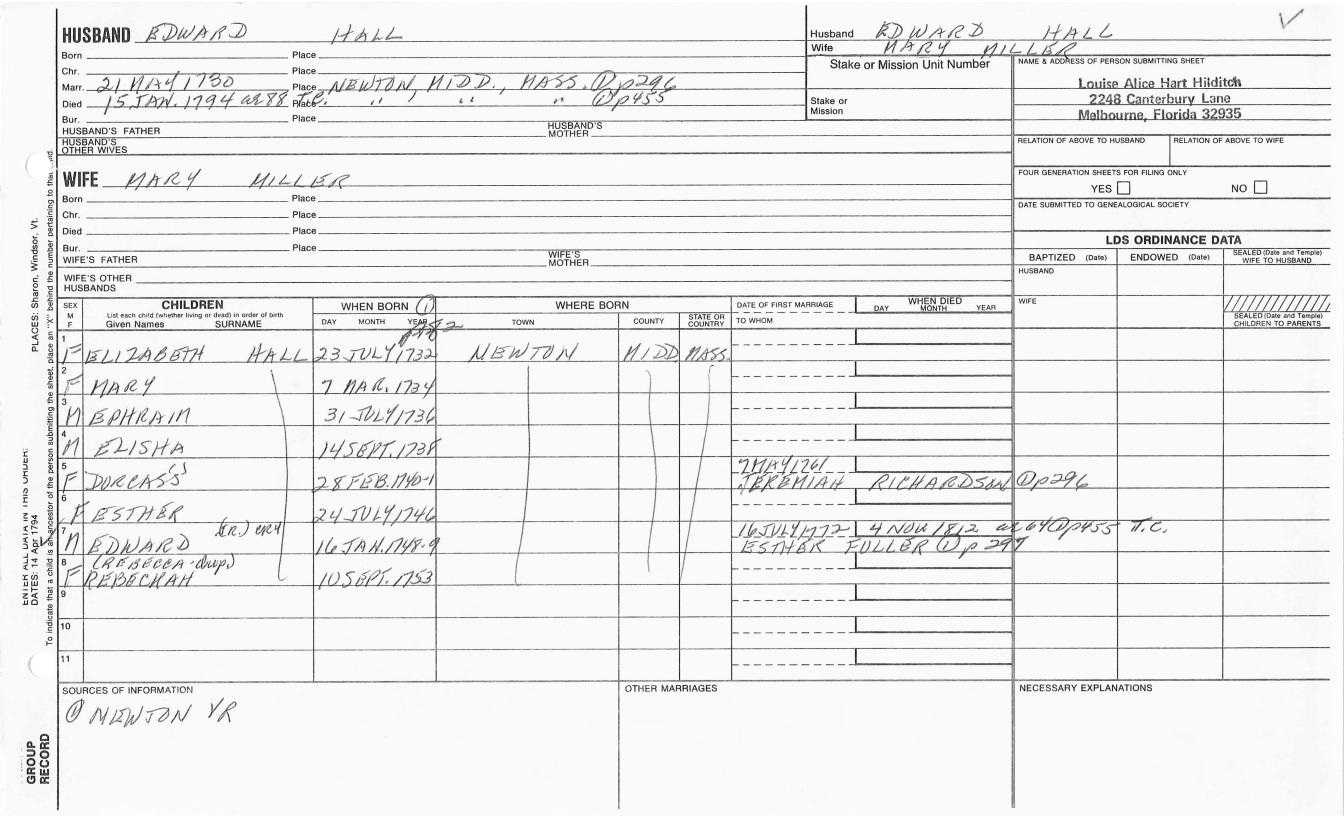 HUSBAND EDWARD HALL
Born Place
Chr. Place
Marr. 21 MAY 1730 Place NEWTON, MIDD., MASS. ① p296
Died 15 JAN. 1794 ae 88 T.C. Place " " " ① p455
Bur. Place
HUSBAND'S FATHER HUSBAND'S MOTHER
HUSBAND'S OTHER WIVES
Husband EDWARD HALL
Wife MARY MILLER
Stake or Mission Unit Number
Stake or Mission
NAME & ADDRESS OF PERSON SUBMITTING SHEET
Louise Alice Hart Hilditch
2248 Canterbury Lane
Melbourne, Florida 32935
RELATION OF ABOVE TO HUSBAND RELATION OF ABOVE TO WIFE
FOUR GENERATION SHEETS FOR FILING ONLY
YES NO
DATE SUBMITTED TO GENEALOGICAL SOCIETY
WIFE MARY MILLER
Born Place
Chr. Place
Died Place
Bur. Place
WIFE'S FATHER WIFE'S MOTHER
WIFE'S OTHER HUSBANDS
LDS ORDINANCE DATA
BAPTIZED (Date) ENDOWED (Date) SEALED (Date and Temple) WIFE TO HUSBAND
HUSBAND
WIFE
SEALED (Date and Temple) CHILDREN TO PARENTS
SEX M F CHILDREN WHEN BORN ① WHERE BORN DATE OF FIRST MARRIAGE WHEN DIED
List each child (whether living or dead) in order of birth
Given Names SURNAME DAY MONTH YEAR TOWN COUNTY STATE OR COUNTRY TO WHOM DAY MONTH YEAR
1 F ELIZABETH HALL 23 JULY 1732 NEWTON MIDD MASS.
2 F MARY 7 MAR. 1734
3 M EPHRAIM 31 JULY 1736
4 M ELISHA 14 SEPT. 1738
5 F DORCASS 28 FEB. 1740-1 7 MAY 1761
JEREMIAH RICHARDSON ① p296
6 F ESTHER 24 JULY 1746
7 M EDWARD (JR.) 16 JAN. 1748-9 16 JULY 1772 4 NOV 1812 ae 64 ① p455 T.C.
ESTHER FULLER ① p 297
8 F (REBECCA-dup) REBECKAH 10 SEPT. 1753
9
10
11
SOURCES OF INFORMATION
① NEWTON VR
OTHER MARRIAGES
NECESSARY EXPLANATIONS
ENTER ALL DATA IN THIS ORDER:
DATES: 14 Apr 1794 PLACES: Sharon, Windsor, Vt.
To indicate that a child is an ancestor of the person submitting the sheet, place an "X" behind the number pertaining to that
GROUP RECORD